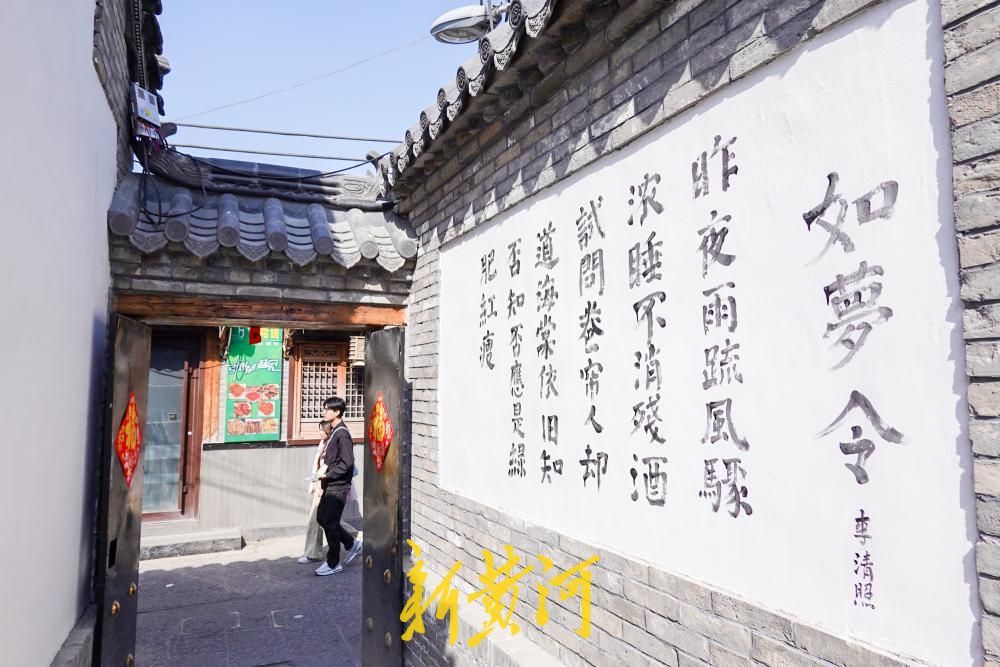 如夢令
李清照
昨夜雨疏風驟
浓睡不消殘酒
試問卷帘人却
道海棠依旧知
否知否應是綠
肥紅瘦
福
福
新黄河